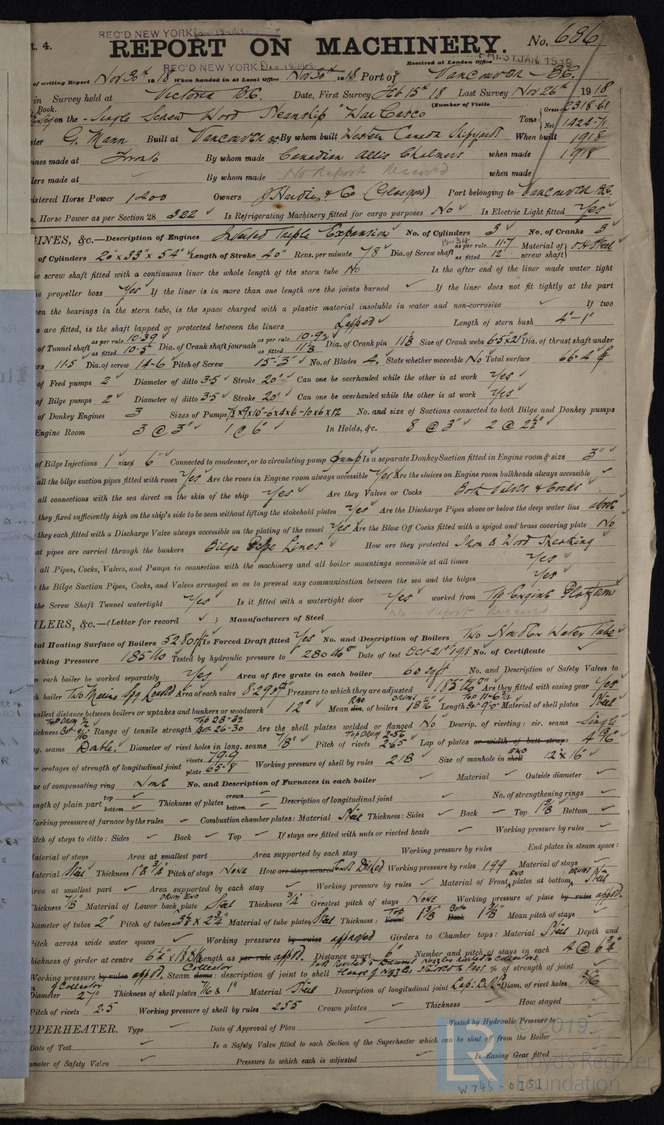 REC'D NEW YORK
t. 4. REPORT ON MACHINERY. No. 686
REC'D NEW YORK
Received at London Office FRI. 31 JAN. 1919
of writing Report Nov 30th 1918 When handed in at Local Office Nov 30th 1918 Port of Vancouver B.C.
in Survey held at Victoria B.C. Date, First Survey Feb 15th 18 Last Survey Nov 26th 1918
Book. (Number of Visits
on the Single Screw Wood Steamship "War Casco" Tons Gross 2318.61 Net 1424.71
ter G. Mann Built at Vancouver BC By whom built Western Canada Shipyards When built 1918
ines made at Toronto By whom made Canadian Allis Chalmers when made 1918
lers made at By whom made No Report Received when made
istered Horse Power 1400 Owners (Glasgow) Port belonging to Vancouver B.C.
n. Horse Power as per Section 28 322 Is Refrigerating Machinery fitted for cargo purposes No Is Electric Light fitted Yes
INES, &c.—Description of Engines Inverted Triple Expansion No. of Cylinders 3 No. of Cranks 3
of Cylinders 20" x 33" x 54" Length of Stroke 40" Revs. per minute 78 Dia. of Screw shaft as per rule 11.7 as fitted 12" Material of screw shaft O.H. Steel
he screw shaft fitted with a continuous liner the whole length of the stern tube No Is the after end of the liner made water tight
he propeller boss Yes If the liner is in more than one length are the joints burned If the liner does not fit tightly at the part
een the bearings in the stern tube, is the space charged with a plastic material insoluble in water and non-corrosive If two
s are fitted, is the shaft lapped or protected between the liners Lapped Length of stern bush 4'-1"
of Tunnel shaft as per rule 10.39 as fitted 10.5 Dia. of Crank shaft journals as per rule 10.92 as fitted 11⅛ Dia. of Crank pin 11⅛ Size of Crank webs 6.5x21 Dia. of thrust shaft under
rs 11.5 Dia. of screw 14-6 Pitch of Screw 15-3" No. of Blades 4 State whether moveable No Total surface 66.4
of Feed pumps 2 Diameter of ditto 3.5 Stroke 20" Can one be overhauled while the other is at work Yes
of Bilge pumps 2 Diameter of ditto 3.5 Stroke 20" Can one be overhauled while the other is at work Yes
of Donkey Engines 3 Sizes of Pumps No. and size of Suctions connected to both Bilge and Donkey pumps
Engine Room 3 @ 3" 1 @ 6" In Holds, &c. 8 @ 3" 2 @ 2½"
of Bilge Injections 1 sizes 6" Connected to condenser, or to circulating pump Pump Is a separate Donkey Suction fitted in Engine room & size 3"
all the bilge suction pipes fitted with roses Yes Are the roses in Engine room always accessible Yes Are the sluices on Engine room bulkheads always accessible
all connections with the sea direct on the skin of the ship Yes Are they Valves or Cocks Both Valves & Cocks
they fixed sufficiently high on the ship's side to be seen without lifting the stokehold plates Yes Are the Discharge Pipes above or below the deep water line above
they each fitted with a Discharge Valve always accessible on the plating of the vessel Yes Are the Blow Off Cocks fitted with a spigot and brass covering plate No
at pipes are carried through the bunkers Bilge Pipe Lines How are they protected Iron & Wood Sheathing
all Pipes, Cocks, Valves, and Pumps in connection with the machinery and all boiler mountings accessible at all times Yes
the Bilge Suction Pipes, Cocks, and Valves arranged so as to prevent any communication between the sea and the bilges Yes
the Screw Shaft Tunnel watertight Yes Is it fitted with a watertight door Yes worked from Top Engine Platform
Report Received
ILERS, &c.—(Letter for record ) Manufacturers of Steel
tal Heating Surface of Boilers 5280 Is Forced Draft fitted Yes No. and Description of Boilers Two Water Tube
orking Pressure 185 lbs Tested by hydraulic pressure to 280 lbs Date of test Oct 21st 1918 No. of Certificate
n each boiler be worked separately Yes Area of fire grate in each boiler 60 sq ft No. and Description of Safety Valves to
ch boiler Area of each valve 8.29 Pressure to which they are adjusted 185 lbs Are they fitted with easing gear Yes
mallest distance between boilers or uptakes and bunkers or woodwork 12" Mean dia. of boilers Length Material of shell plates Steel
hickness Range of tensile strength Top 28-32 Bot 26-30 Are the shell plates welded or flanged No Descrip. of riveting: cir. seams Single
g. seams Double Diameter of rivet holes in long. seams ⅞ Pitch of rivets 2.65 Lap of plates or width of butt straps
r centages of strength of longitudinal joint rivets 79.9 plate 65.7 Working pressure of shell by rules 218 Size of manhole in shell 12 x 16"
ze of compensating ring No. and Description of Furnaces in each boiler Material Outside diameter
ngth of plain part top bottom Thickness of plates crown bottom Description of longitudinal joint No. of strengthening rings
orking pressure of furnace by the rules Combustion chamber plates: Material Steel Thickness: Sides Back Top Bottom
itch of stays to ditto: Sides Back Top If stays are fitted with nuts or riveted heads Working pressure by rules
aterial of stays Area at smallest part Area supported by each stay Working pressure by rules End plates in steam space:
aterial Steel Thickness Pitch of stays None How are stays secured Working pressure by rules 199 Material of stays
rea at smallest part Area supported by each stay Working pressure by rules Material of Front plates at bottom Steel
hickness ⅞ Material of Lower back plate Steel Thickness ¾ Greatest pitch of stays None Working pressure of plate by rules appd.
iameter of tubes 2" Pitch of tubes Material of tube plates Steel Thickness: Mean pitch of stays
itch across wide water spaces Working pressures by rules approved Girders to Chamber tops: Material Steel Depth and
hickness of girder at centre Length as per rule appd. Distance apart 6" Number and pitch of stays in each
orking pressure by rules appd. Steam dome: Collector description of joint to shell % of strength of joint
of Collector Diameter 27" Thickness of shell plates Material Steel Description of longitudinal joint Diam. of rivet holes
itch of rivets 2.5 Working pressure of shell by rules 255 Crown plates Thickness How stayed
UPERHEATER. Type Date of Approval of Plan Tested by Hydraulic Pressure to
Date of Test Is a Safety Valve fitted to each Section of the Superheater which can be shut off from the Boiler
ameter of Safety Valve Pressure to which each is adjusted Is Easing Gear fitted
© 2019
LR Lloyd's Register Foundation
W745-0151